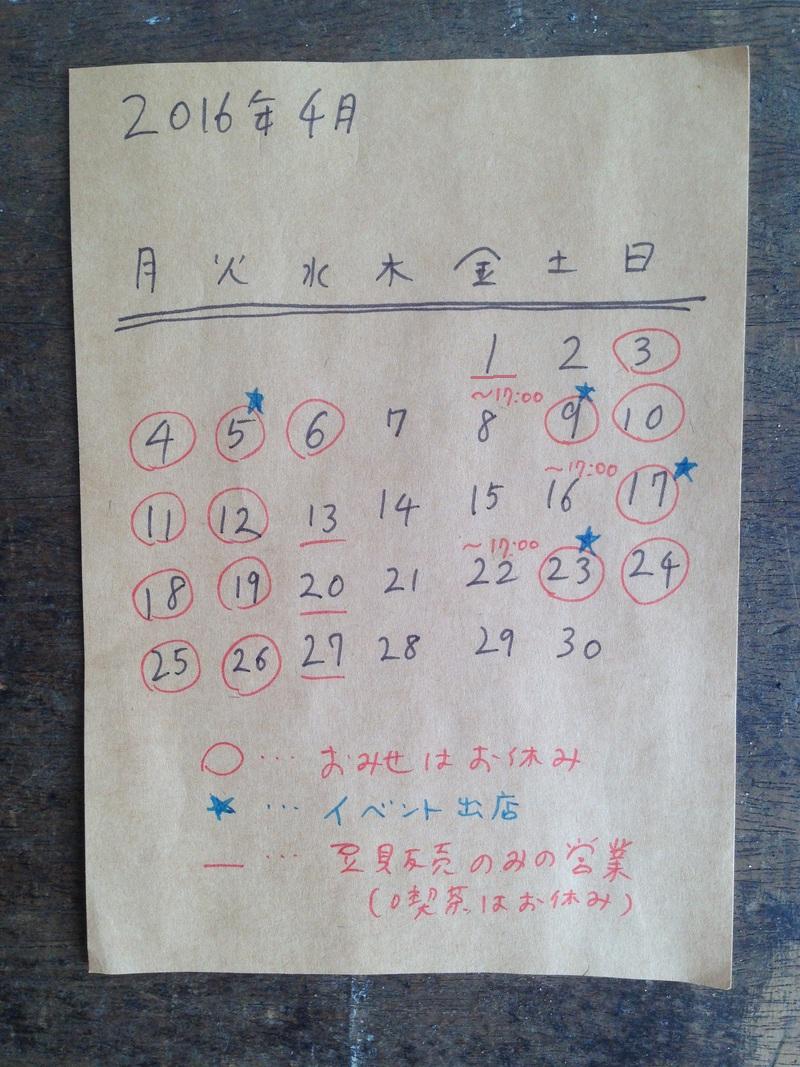 2016年4月
月 火 水 木 金 土 日
1 2 3
~17:00
4 5 6 7 8 9 10
~17:00
11 12 13 14 15 16 17
~17:00
18 19 20 21 22 23 24
25 26 27 28 29 30
○ … おみせはお休み
★ … イベント出店
― … 豆販売のみの営業
(喫茶はお休み)